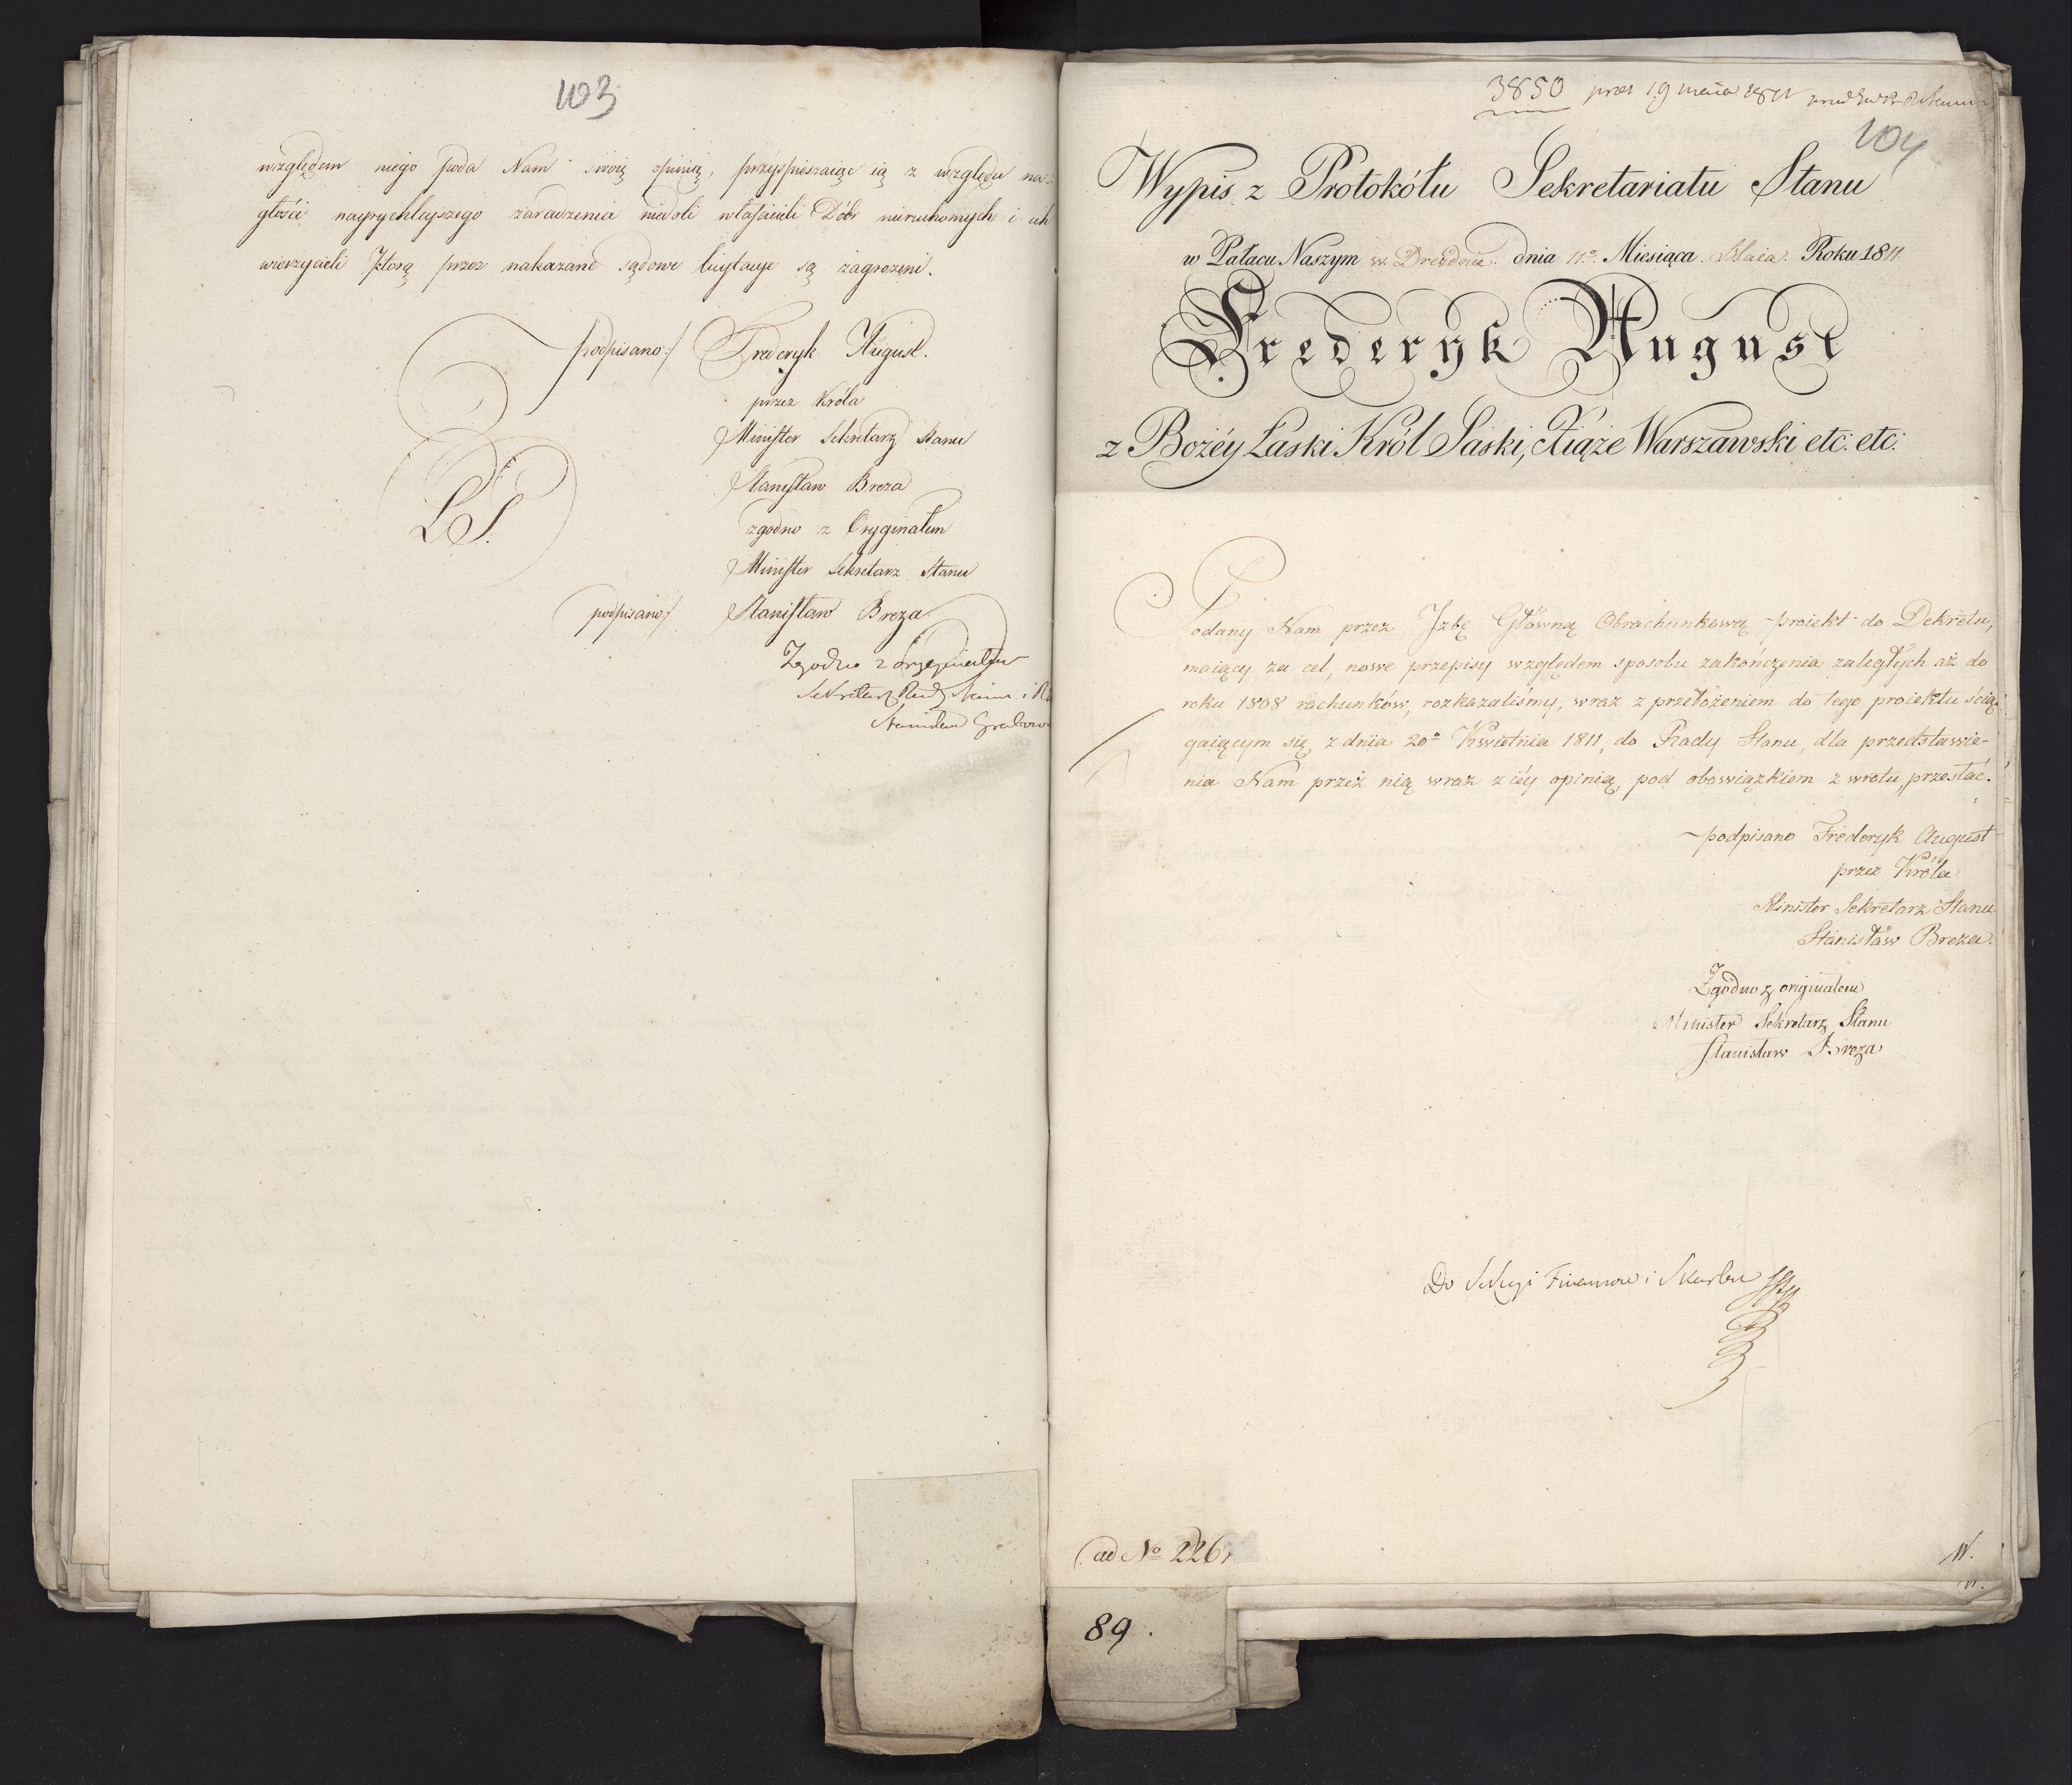 103
względem niego poda Nam swoię opinią, przyspieszaiąc ią z względu na-
głości nayrychleyszego zaradzenia niedoli właścicieli Dóbr nieruchomych i ich
wierzycieli którą przez nakazane sądowe licytacye są zagrożeni.
podpisano:/ Frederyk August.
przez Króla
Minister Sekretarz Stanu
Stanisław Breza
L S.
zgodno z Oryginałem
Minister Sekretarz Stanu
podpisano/ Stanisław Breza
Zgodno z oryginałem
Sekretarz Rady Stanu i
Stanisław
3850 prez 19 maia 1811
104
Wypis z Protokółu Sekretariatu Stanu
w Pałacu Naszym w Dreźdnie. dnia 11º. Miesiąca. Maia. Roku 1811
Frederyk August
z Bożéy Łaski Król Saski, Xiąże Warszawski etc: etc:
Podany Nam przez Jzbę Główną Obrachunkową proiekt do Dekretu,
maiący za cel, nowe przepisy względem sposobu zakończenia zaległych aż do
roku 1808 rachunków, rozkazaliśmy, wraz z przełożeniem do tego proiektu ścią-
gaiącym się, z dnia 20º Kwietnia 1811, do Rady Stanu, dla przedstawie-
nia Nam przez nią wraz z iéy opinią, pod obowiązkiem zwrotu, przesłać.
podpisano Frederyk August
przez Króla
Minister Sekretarz Stanu
Stanisław Breza.
Zgodno z originałem
Minister Sekretarz Stanu
Stanisław Breza
Do Sekcyi Finansów i Skarbu
ad Nº 226,
W.
89.